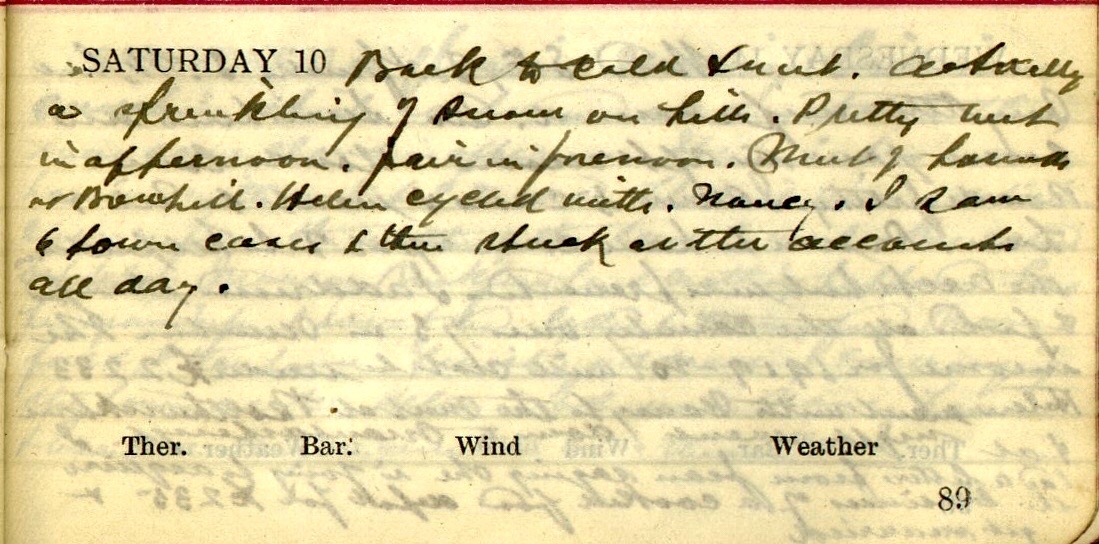 SATURDAY 10 Back to cold & wet. Actually
a sprinkling of snow on hills. Pretty wet
in afternoon. fair in forenoon. Meet of hounds
at Bowhill. Helen cycled with. Nancy. I saw
6 town cases & then stuck at the accounts
all day.
Ther. Bar. Wind Weather
89